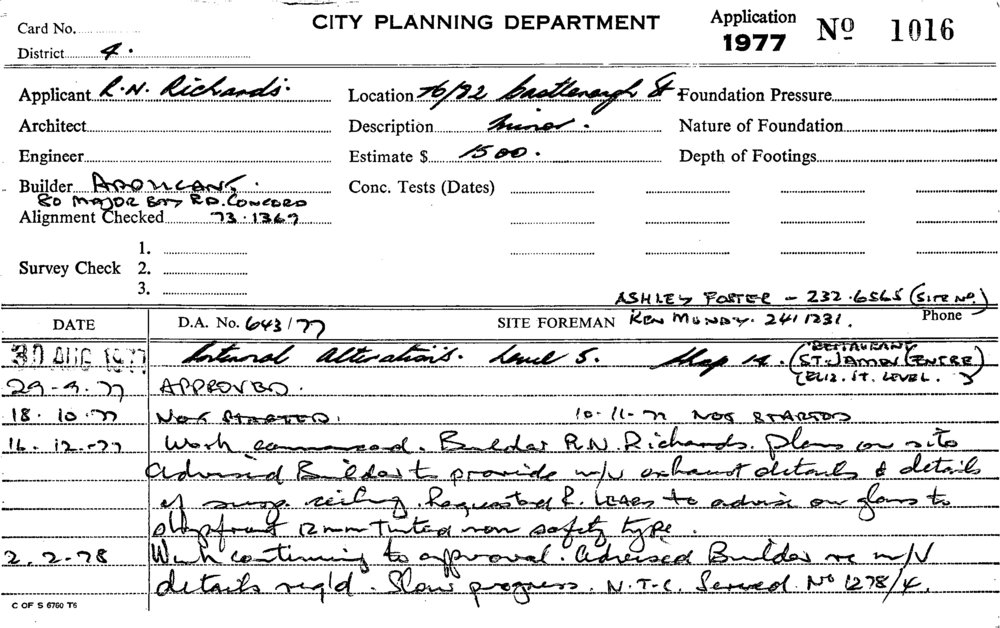 Card No.
CITY PLANNING DEPARTMENT
Application 1977 No 1016
District 4.
Applicant R.N. Richards. Location 76/82 Castlereagh St Foundation Pressure
Architect Description minor. Nature of Foundation
Engineer Estimate $ 1500. Depth of Footings
Builder APPLICANT. Conc. Tests (Dates)
80 MAJOR BAY RD. CONCORD
Alignment Checked 73.1367
1.
Survey Check 2.
3.
ASHLEY FOSTER - 232.6565 (SITE NO.)
DATE D.A. No. 643/77 SITE FOREMAN KEN MUNDY. 241 1231. Phone
30 AUG 1977 Internal alterations. Level 5. Shop 14. (RESTAURANT
ST. JAMES CENTRE)
(ELIZ. ST. LEVEL.)
29-9-77 APPROVED.
18.10.77 NOT STARTED. 10-11-77 NOT STARTED
16.12.-77 Work commenced. Builder R.N. Richards. Plans on site
Advised Builder to provide m/v exhaust details & details
of susp. ceiling. Requested R. to advise on glass to
shopfront 12mm Tinted non safety type.
2.2.78 Work continuing to approval. Advised Builder re m/v
details req'd. Slow progress. N.T.C. Served. No 1278/4.
C OF S 6760 T6